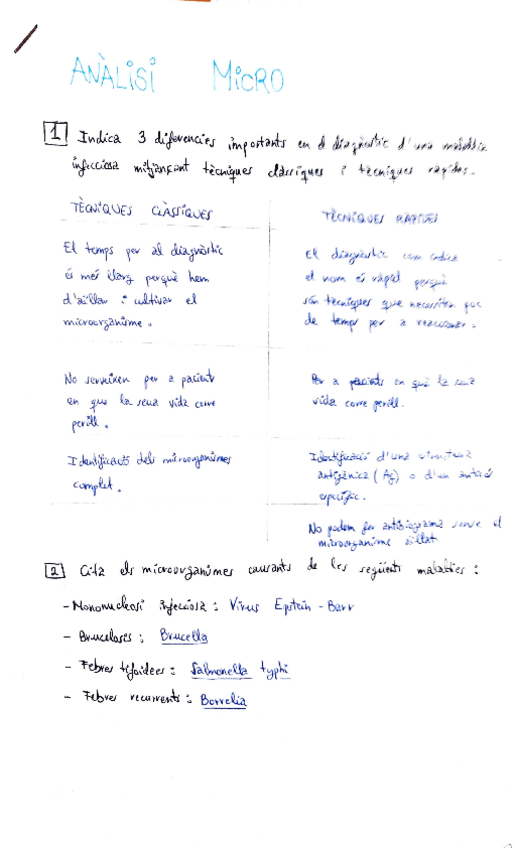 ANÀLISI MICRO
1 Indica 3 diferencies importants en el diagnòstic d'una malaltia
infecciosa mitjançant tècniques clàssiques i tècniques ràpides.
TÈCNIQUES CLÀSSIQUES
El temps per al diagnòstic
és més llarg perquè hem
d'aïllar i cultivar el
microorganisme.
TÈCNIQUES RÀPIDES
El diagnòstic com indica
el nom és ràpid perquè
són tècniques que necessiten poc
de temps per a reaccionar.
No serveixen per a pacient
en que la seua vida corre
perill.
Per a pacients en què la seua
vida corre perill.
Identificació dels microorganismes
complet.
Identificació d'una estructura
antigènica (Ag) o d'un
específic.
No podem fer antibiograma sense el
microorganisme aïllat
2 Cita els microorganismes causants de les següents malalties :
- Mononucleosi infecciosa : Virus Epstein - Barr
- Bruceloses : Brucella
- Febres tifoidees : Salmonella typhi
- Febres recurrents : Borrelia